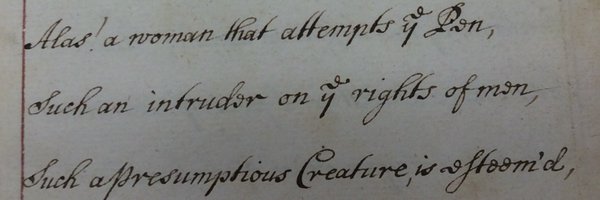 Alas! a woman that attempts yᵉ Pen,
Such an intruder on yᵉ rights of men,
Such a presumptious Creature, is esteem'd,